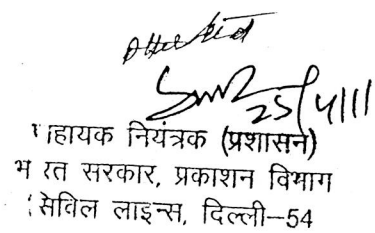 Attested
25/4/11
सहायक नियंत्रक (प्रशासन)
भारत सरकार, प्रकाशन विभाग
सिविल लाइन्स, दिल्ली-54